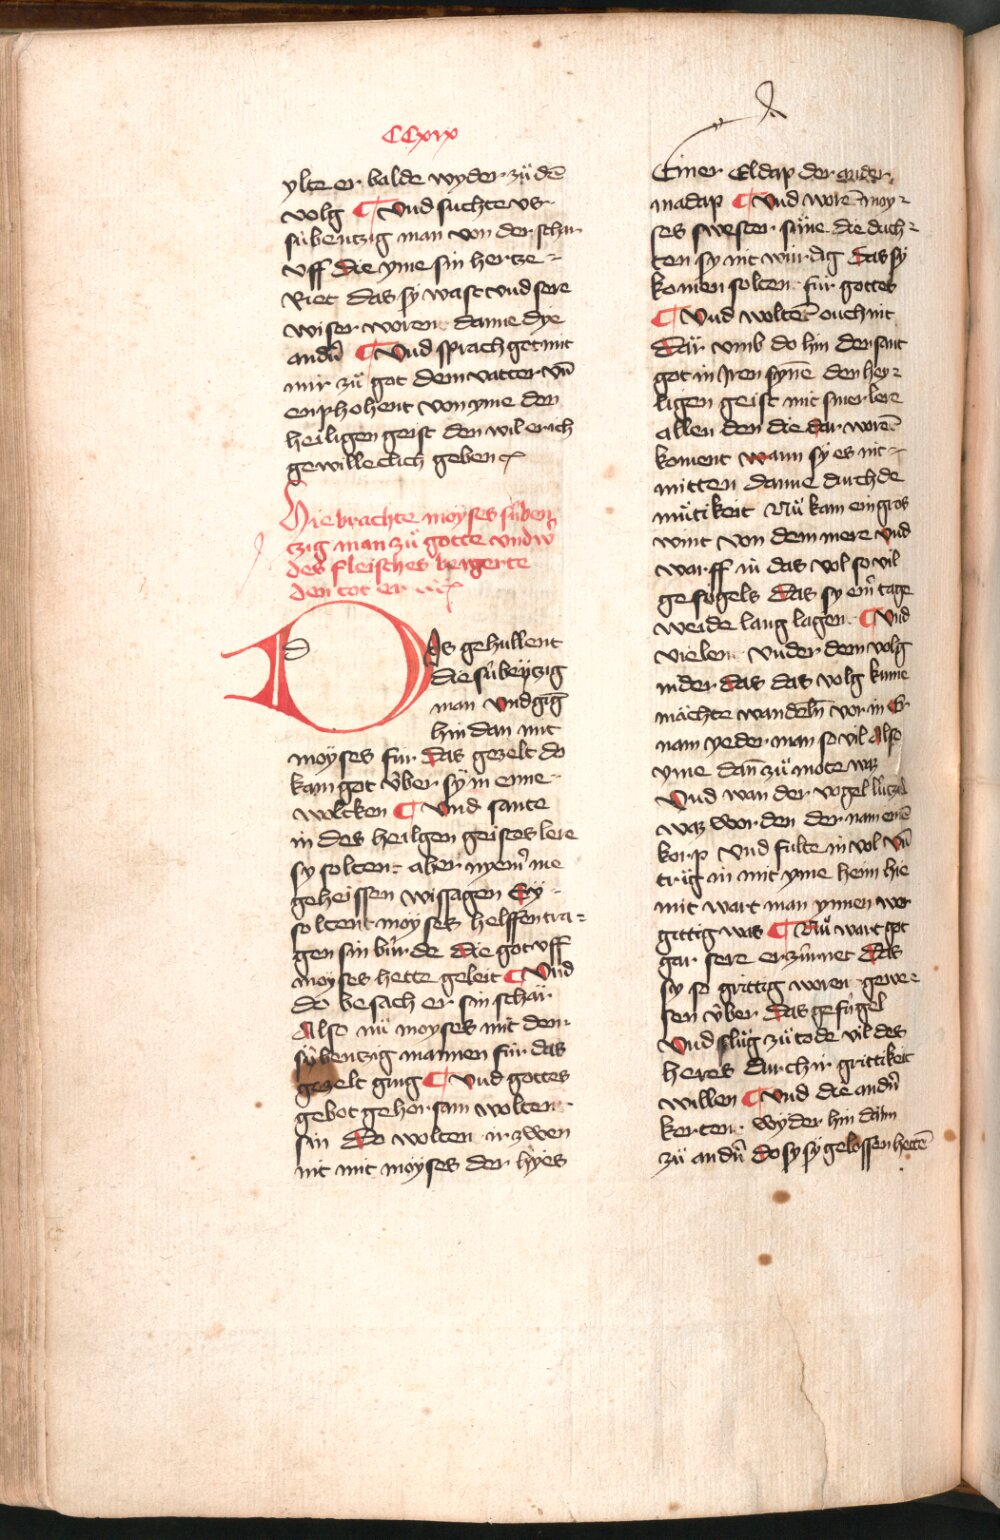 CCxix
ylte er balde wyder zuͦ dē
volg Und suchte us
sübentzig man von der schar
uff die yme sin hertze
Riet das sy wast und sere
wiser woren danne dye
andn̄ Und sprach get mit
mir zuͦ got dem vatter vn̄
enphohent von yme den
heiligen geist den wil er ich
gewilleclich geben
Hie brachte moyses süben
tzig man zuͦ gotte und w
des fleisches begerte
den tot er
Das gehullent
die sübentzig
man und gīg
hin dan mit
moyses fur das gezelt do
kam got über sy in einne
wolcken Und sante
in des heilgen geistes lere
sy solten aber nyem̄ me
geheissen wissagen Sy
soltent moyses helffen tra
gen sin bürde die got uff
moyses hette geleit Und
do besach er sin schar
Also nü moyses mit den
sübentzig mannen für das
gezelt ging Und gottes
gebot gehorsam wolten
sin Do wolten ir zwen
nit mit moyses der hyes
Einer Eldap der ander
madap Und worē moy
ses swester süne die duch
ten sy nit würdig das sy
komen solten für gottes
Und woltē ouch nit
dar umb do hin der sant
got in Iren synē den hey
ligen geist mit siner lere
allen den die dar worē
koment wann sy es nit
mitten danne durch de
mütikeit Nuͦ kam ein gros
wint von dem mere und
warff in das vol so vil
gefögels das sy ein̄ tage
weide lang lagen Und
vielen under dem volg
nider das das volg kume
möchte wandeln vor in Er
nam yederman so vil Also
yme dan̄ zuͦ mote waz
Und wan der vogel lützel
waz worden der nam einē
korp und fulte in vol vn̄
truͦg in mit yme heim hie
mit wart man ynnen wer
gittig was Nuͦ wart got
gar sere erzürnet das
sy so grittig woren gewe
sen über das gefügel
Und sluͦg zuͦ tode vil des
heres durch ir grittikeit
willen Und die andn̄
kerten wyder hin dann
zuͦ andn̄ do sy sy gelossen hettē